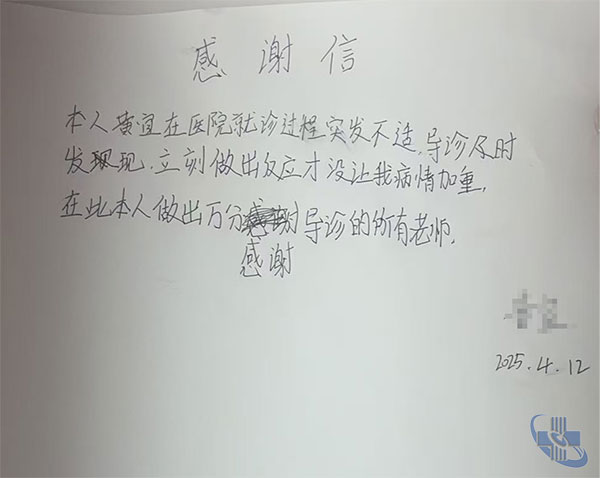 感谢信
本人黄宜在医院就诊过程突发不适,导诊及时
发现现.立刻做出反应才没让我病情加重,
在此本人做出万分 导诊的所有老师.
感谢
2025.4.12